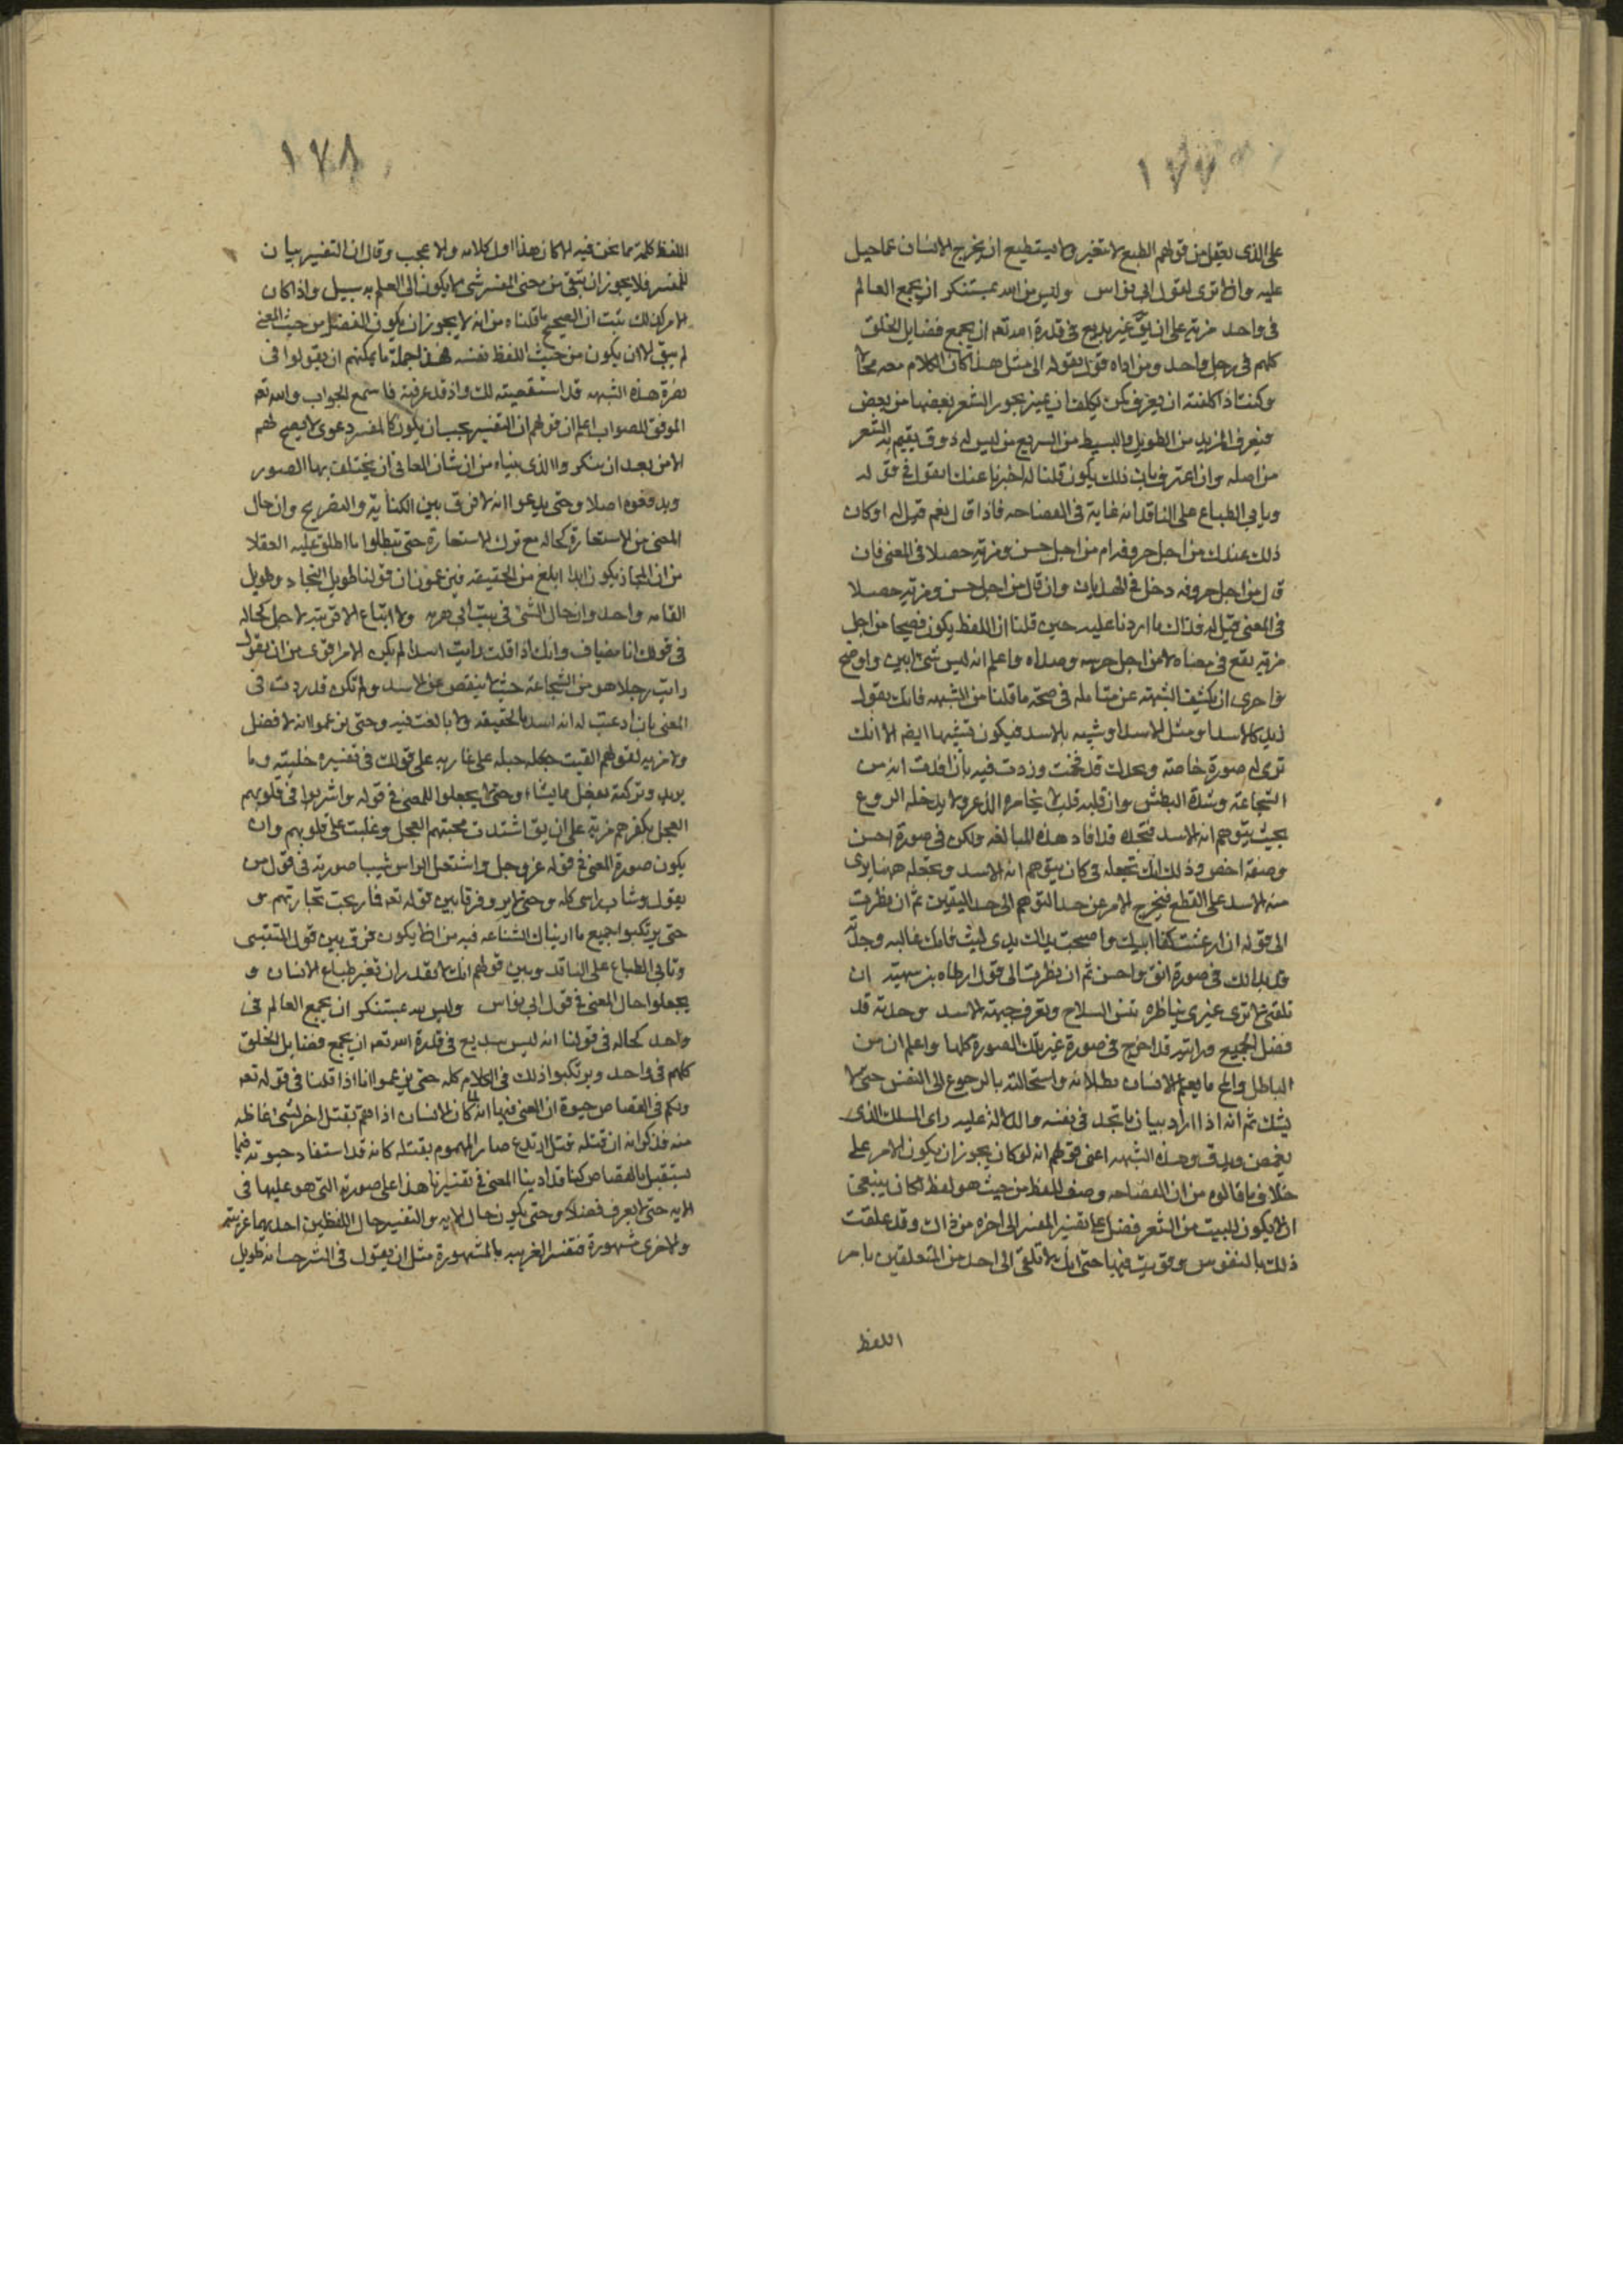 ١٧٧
على الذى يعقل من قولهم الطبع لا يتغير ولا يستطيع ان يخرج الانسان عما جبل
عليه وان لا ترى لقول ابى نواس وليس من الله بمستنكر ان يجمع العالم
فى واحد مزية على ان يق غير بديع فى قدرة الله تعه ان يجمع فضايل الخلق
كلهم فى رجل واحد ومن اداه قول يقوله الى مثل هذا كان الكلام معه محالا
وكنت اذا كلفته ان يعرف كمن يكلف ان يميز بحور الشعر بعضها من بعض
فيعرف المديد من الطويل والبسيط من السريع من ليس له ذوق يقيم به الشعر
من اصله وان اعترف بان ذلك يكون قلنا له اخبرنا عنك اتقول فى قوله
وتابى الطباع على الناقد انه غاية فى الفصاحه فاذا قال نعم قيل له او كان
ذلك عندك من اجل حروفه ام من اجل حسن ومزيه حصلا فى المعنى فان
قال من اجل حروفه دخل فى الهذيان وان قال من اجل حسن ومزيه حصلا
فى المعنى قيل له فذاك ما اردناك عليه حين قلنا ان اللفظ يكون فصيحا من اجل
مزيه تقع فى معناه لا من اجل جرسه وصداه واعلم انه ليس شئ ابين واوضح
واحرى ان يكشف الشبهة عن متامله فى صحة ما قلنا من التشبيه فانك تقول
زيد كالاسد او مثل الاسد او شبيه بالاسد فيكون تشبيها ايضه الا انك
ترى له صورة خاصة وبحدك قد فخمت وزدت فيه بان افدت انه من
الشجاعة وشدة البطش وان قلبه قلب لا يخامره الذعر ولا يدخله الروع
بحيث يتوهم انه الاسد فتجده قد افاد هذه المبالغه ولكن فى صورة احسن
وصفة اخص وذلك انك تجعله فى كان يتوهم انه الاسد وتجعله ههنا يرى
منه الاسد على القطع فيخرج الامر عن حد التوهم الى حد اليقين ثم ان نظرت
الى قوله اان ارعشت كفا ابيك واصبحت يداك يدى ليث فانك غالبه وجدته
قد بدا لك فى صورة انق واحسن ثم ان نظرت الى قول ارطاه بن سهيه ان
تلقنى لا ترى غيرى بناظرة تنس السلاح وتعرف جبهة الاسد وجدته قد
فضل الجميع ورايته قد اخرج فى صورة غير تلك الصورة كلها واعلم ان من
الباطل والمح ما يعلم الانسان بطلانه واستحالته بالرجوع الى النفس حتى لا
يشك ثم انه اذا اراد بيان ما تجد فى نفسه والدلالة عليه راى المسلك الذى
يغمض ويدق وهذه الشبهه اعنى قولهم انه لو كان يجوز ان يكون الامر على
خلاف ما قالوه من ان الفصاحه وصف للفظ من حيث هو لفظ لكان ينبغى
ان لا يكون للبيت من الشعر فضل على تفسير المفسر الى اخره من ذاك وقد علقت
ذلك بالنفوس وقويت فيها حتى انك لا تلقى الى احد من المتعلقين بامر
اللفظ
١٧٨
اللفظ كلمة مما نحن فيه الا كان هذا اول كلامه والا عجب وقال ان التفسير بيان
للمفسر فلا يجوز ان يبقى من معنى المفسر شئ لا يكون الى العلم به سبيل واذا كان
الامر كذلك ثبت ان الصحيح ما قلناه من انه لا يجوز ان يكون الفضل من حيث المعنى
لم يبق الا ان يكون من حيث اللفظ نفسه فهذا جملة ما يمكنهم ان يقولوا فى
نصرة هذه الشبهه قد استقصيته لك واذ قد عرفته فاستمع الجواب والله تعه
الموفق للصواب اعلم ان قولهم ان التفسير يجب ان يكون كالمفسر دعوى لا يصح لهم
الا من بعد ان ينكروا الذى بيناه من ان شان المعانى ان يختلف بها الصور
ويدفعوه اصلا وحتى يدعوا انه لا فرق بين الكناية والتصريح وان حال
المعنى مع الاستعارة كحاله مع ترك الاستعارة حتى يبطلوا ما اطلق عليه العقلا
من ان المجاز يكون ابدا ابلغ من الحقيقه فيزعمون ان قولنا طويل النجاد وطويل
القامه واحد وان حال المعنى فى بيت ابى هرمه ولا ابتاع الا قريبة الاجل كحاله
فى قولك انا مضياف وانك اذا قلت رايت اسدا لم يكن الامر اقوى من ان تقول
رايت رجلا هو من الشجاعة حيث لا ينقص عن الاسد ولم تكن قد زدت فى
المعنى بان ادعيت له انه اسد بالحقيقه ولا بالغت فيه وحتى يزعموا انه لا فضل
ولا مزيه لقولهم القيت حبله على غاربه على قولك فى تفسيره خليته وما
يريد وتركته يفعل ما يشاء وحتى لا يجعلوا للمعنى فى قوله واشربوا فى قلوبهم
العجل بكفرهم مزية على ان يق اشتدت محبتهم العجل وغلبت على قلوبهم وان
يكون صورة المعنى فى قوله عز وجل واشتعل الراس شيبا صورته فى قول من
يقول وشاب راسى كله وحتى لا يروا فرقا بين قوله تعه فما ربحت تجارتهم و
حتى يرتكبوا جميع ما اريناك الشناعه فيه من ان لا يكون فرق بين قول المتنبى
وتابى الطباع على الناقد وبين قولهم انك لا تقدر ان تغير طباع الانسان و
يجعلوا حال المعنى فى قول ابى نواس وليس لله بمستنكر ان يجمع العالم فى
واحد كحاله فى قولنا انه ليس ببديع فى قدرة الله تعه ان يجمع فضايل الخلق
كلهم فى واحد ويرتكبوا ذلك فى الكلام كله حتى يزعموا انا اذا قلنا فى قوله تعه
ولكم فى القصاص حيوة ان المعنى فيها انه لما كان الانسان اذا هم بقتل اخر لشئ غاظه
منه فذكر انه ان قتله قتل ارتدع صار المهموم بقتله كانه قد استفاد حيوته فيما
يستقبل بالقصاص كنا قد ادينا المعنى فى تفسيرنا هذا على صورته التى هو عليها فى
الايه حتى لا يعرف فضلا وحتى يكون حال الايه والتفسير حال اللفظين احدهما غريبة
والاخرى مشهورة فتفسر الغريبه بالمشهورة مثل ان يقول فى الشرجب انه طويل